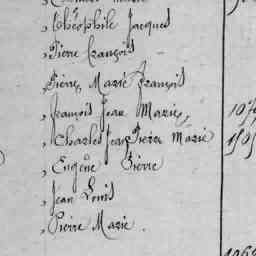 , Théophile Jacques
, Pierre François
, Pierre Marie François
, François Jean Marie,
, Charles Jean Pierre Marie
, Eugène Pierre
, Jean Louis
, Pierre Marie.